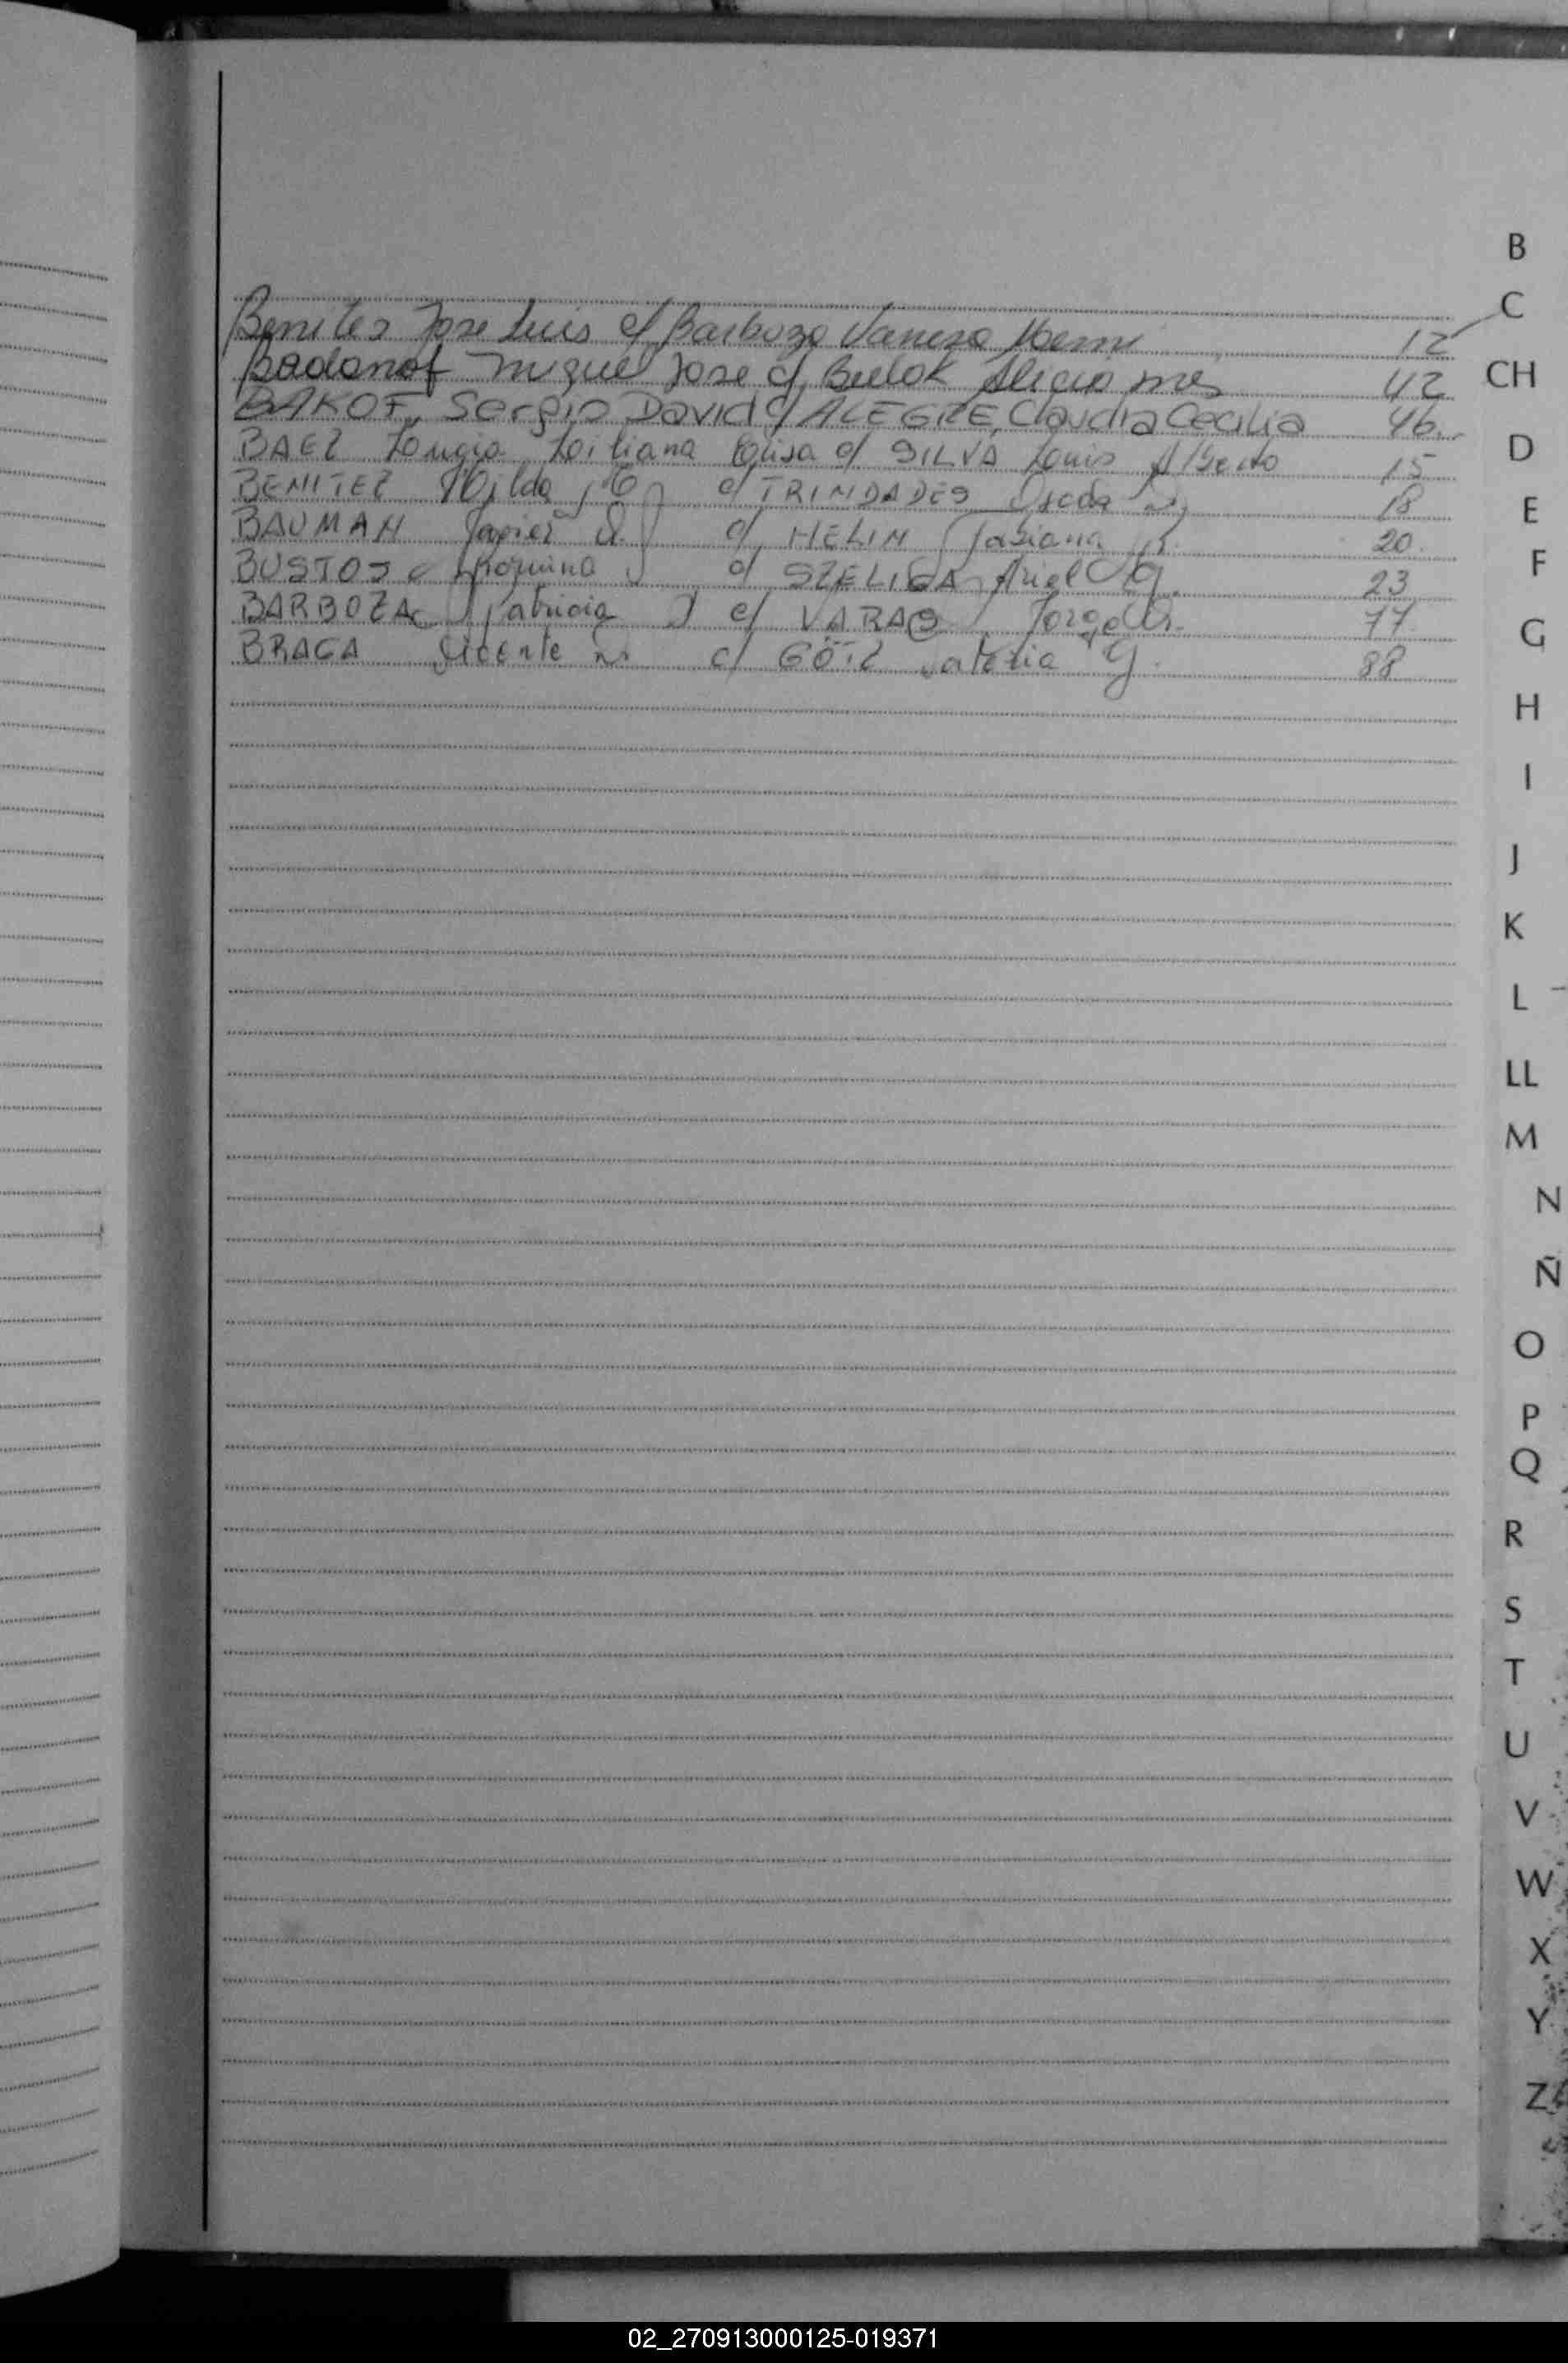 Benitez Jose Luis c/ Barbozo Vanesa Noemi 12
Badanof Miguel Jose c/ Bulok Alicia 42
BAKOF, Sergio David c/ ALEGRE, Claudia Cecilia 46
BAEZ Liliana Elisa c/ SILVA Luis Alberto 15
BENITEZ Hilda c/ TRINDADES 18
BAUMAN Javier c/ HELIM Fabiana 20
BUSTOS Romina c/ SZELIGA Ariel G. 23
BARBOZA Patricia c/ VARAS Jorge 77
BRAGA Vicente c/ GÖTZ Valeria G. 88
B
C
CH
D
E
F
G
H
I
J
K
L
LL
M
N
Ñ
O
P
Q
R
S
T
U
V
W
X
Y
Z
02_270913000125-019371